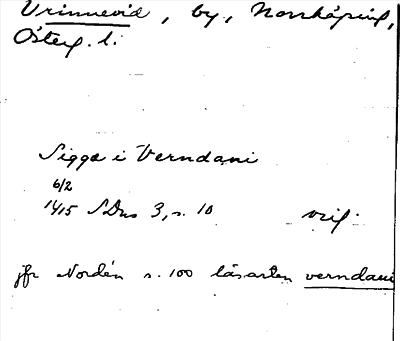 Vrinnevid, by, Norrköping,
Österg. l.
Sigge i Verndani
6/2
1415 SDns 3, s. 10
jfr Nordén s. 100 läsarten verndani